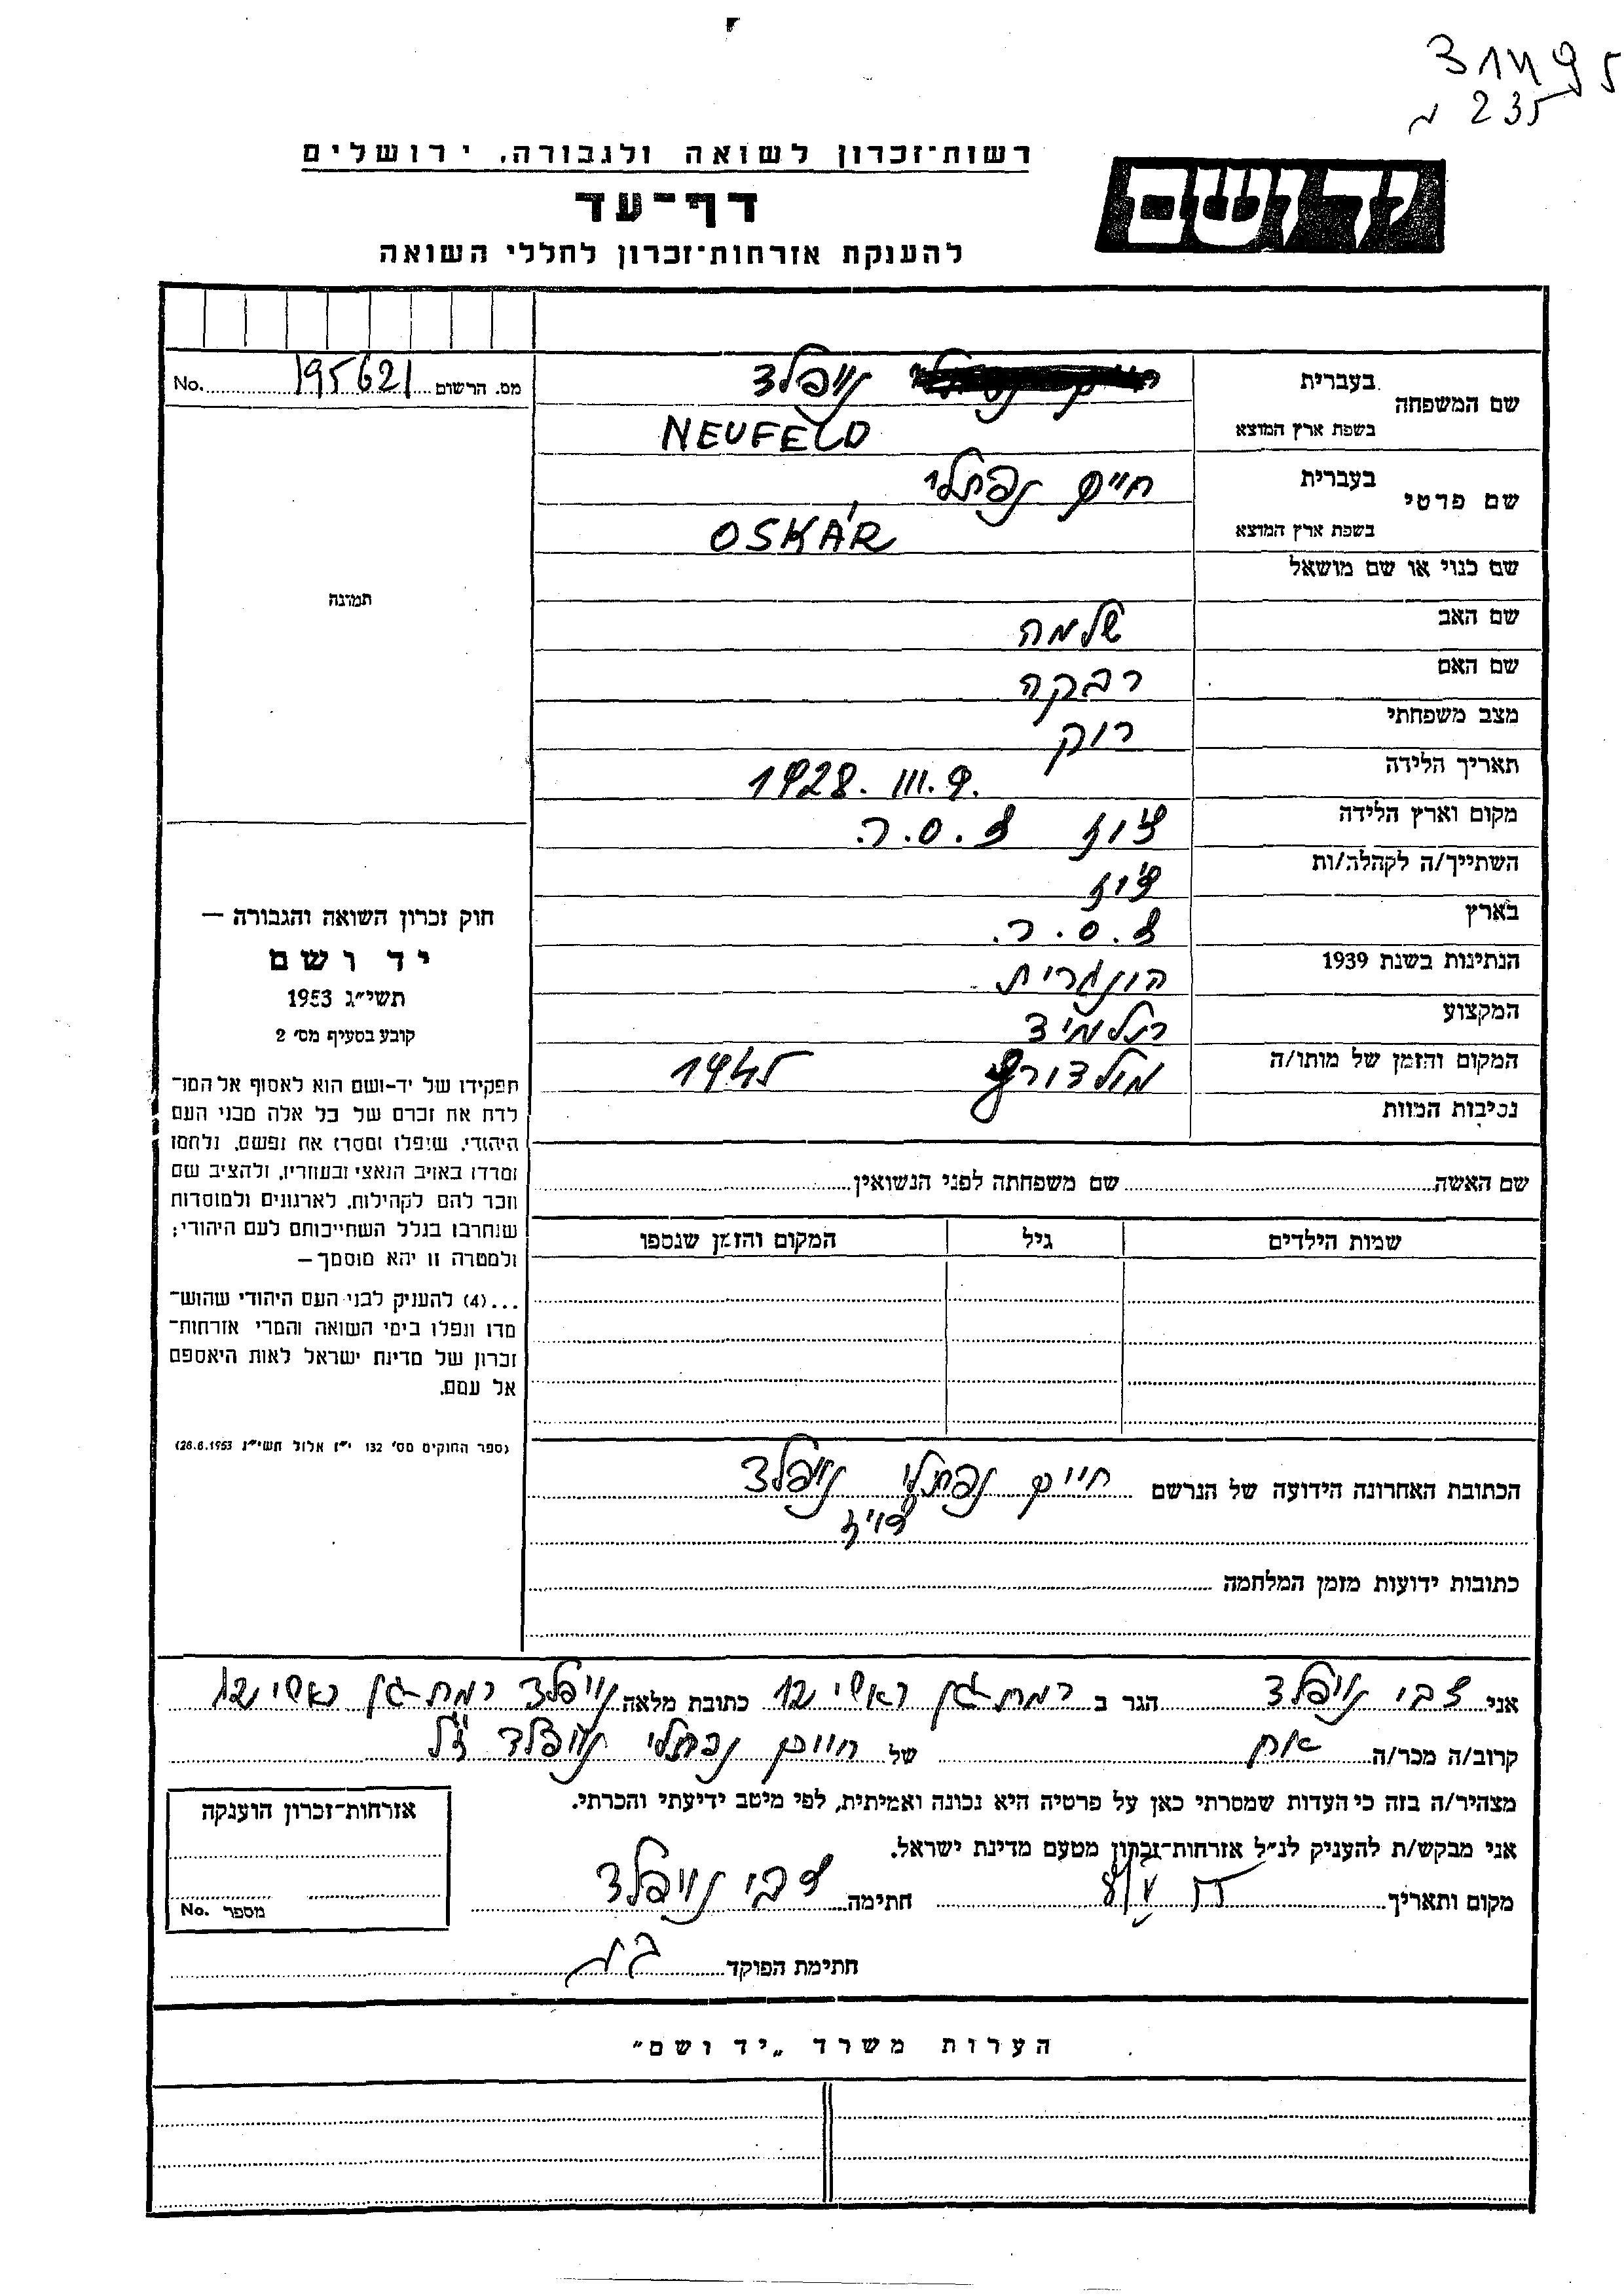 235 נ
רשות־זכרון לשואה ולגבורה, ירושלים
יד ושם
דף־עד
להענקת אזרחות־זכרון לחללי השואה
שם המשפחה
בעברית נויפלד
בשפת ארץ המוצא NEUFELD
מס. הרשום 195621 No.
שם פרטי
בעברית חיים נפתלי
בשפת ארץ המוצא OSKÁR
שם כנוי או שם מושאל
תמונה
שם האב שלמה
שם האם רבקה
מצב משפחתי רוק
תאריך הלידה 1928. III. 9.
מקום וארץ הלידה צ.ס.ר.
השתייך/ה לקהלה/ות
בארץ צ.ס.ר.
הנתינות בשנת 1939 הונגרית
המקצוע תלמיד
המקום והזמן של מותו/ה מולדורף 1945
נסיבות המוות
חוק זכרון השואה והגבורה —
יד ושם
תשי״ג 1953
קובע בסעיף מס׳ 2
תפקידו של יד-ושם הוא לאסוף אל המו־
לדת את זכרם של כל אלה מבני העם
היהודי, שנפלו ומסרו את נפשם, נלחמו
ומרדו באויב הנאצי ובעוזריו, ולהציב שם
וזכר להם לקהילות, לארגונים ולמוסדות
שנחרבו בגלל השתייכותם לעם היהודי;
ולמטרה זו יהא מוסמך —
...(4) להעניק לבני העם היהודי שהוש־
מדו ונפלו בימי השואה והמרי אזרחות־
זכרון של מדינת ישראל לאות היאספם
אל עמם.
(ספר החוקים מס׳ 132 י״ז אלול תשי״ג 28.8.1953)
שם האשה שם משפחתה לפני הנשואין
שמות הילדים גיל המקום והזמן שנספו
הכתובת האחרונה הידועה של הנרשם חיים נפתלי נויפלד
כתובות ידועות מזמן המלחמה
אני צבי נויפלד הגר ב רמת-גן ראשי 12 כתובת מלאה נויפלד רמת-גן ראשי 12
קרוב/ה מכר/ה אח של חיים נפתלי נויפלד ז״ל
מצהיר/ה בזה כי העדות שמסרתי כאן על פרטיה היא נכונה ואמיתית, לפי מיטב ידיעתי והכרתי.
אני מבקש/ת להעניק לנ״ל אזרחות־זכרון מטעם מדינת ישראל.
מקום ותאריך חתימה צבי נויפלד
אזרחות־זכרון הוענקה
מספר No.
חתימת הפוקד
הערות משרד „יד ושם״